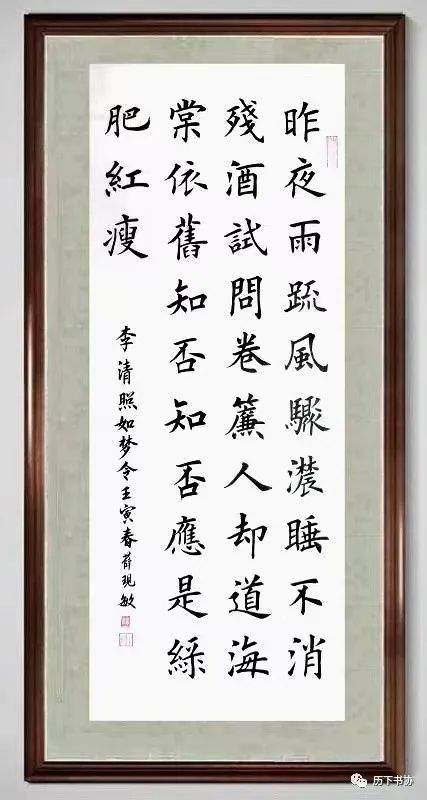 昨夜雨疏風驟濃睡不消
殘酒試問卷簾人却道海
棠依舊知否知否應是綠
肥紅瘦
李清照如梦令壬寅春薛現敏
历下书协